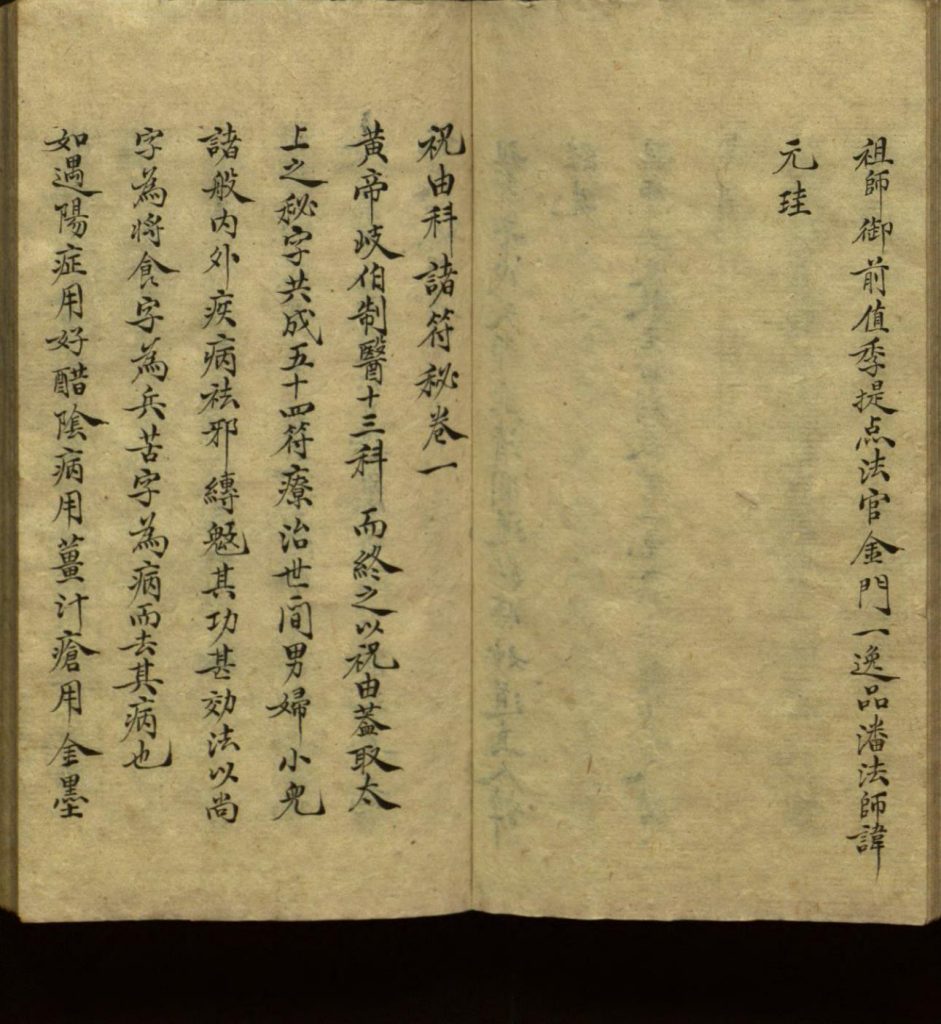 祖師御前值季提点法官金門一逸品潘法師諱
元珪
祝由科諸符秘卷一
黃帝岐伯制醫十三科 而終之以祝由蓋取太
上之秘字共成五十四符療治世间男婦小児
諸般内外疾病袪邪縛魃其功甚効法以尚
字為將食字為兵苦字為病而去其病也
如遇陽症用好醋陰病用薑汁瘡用金墨